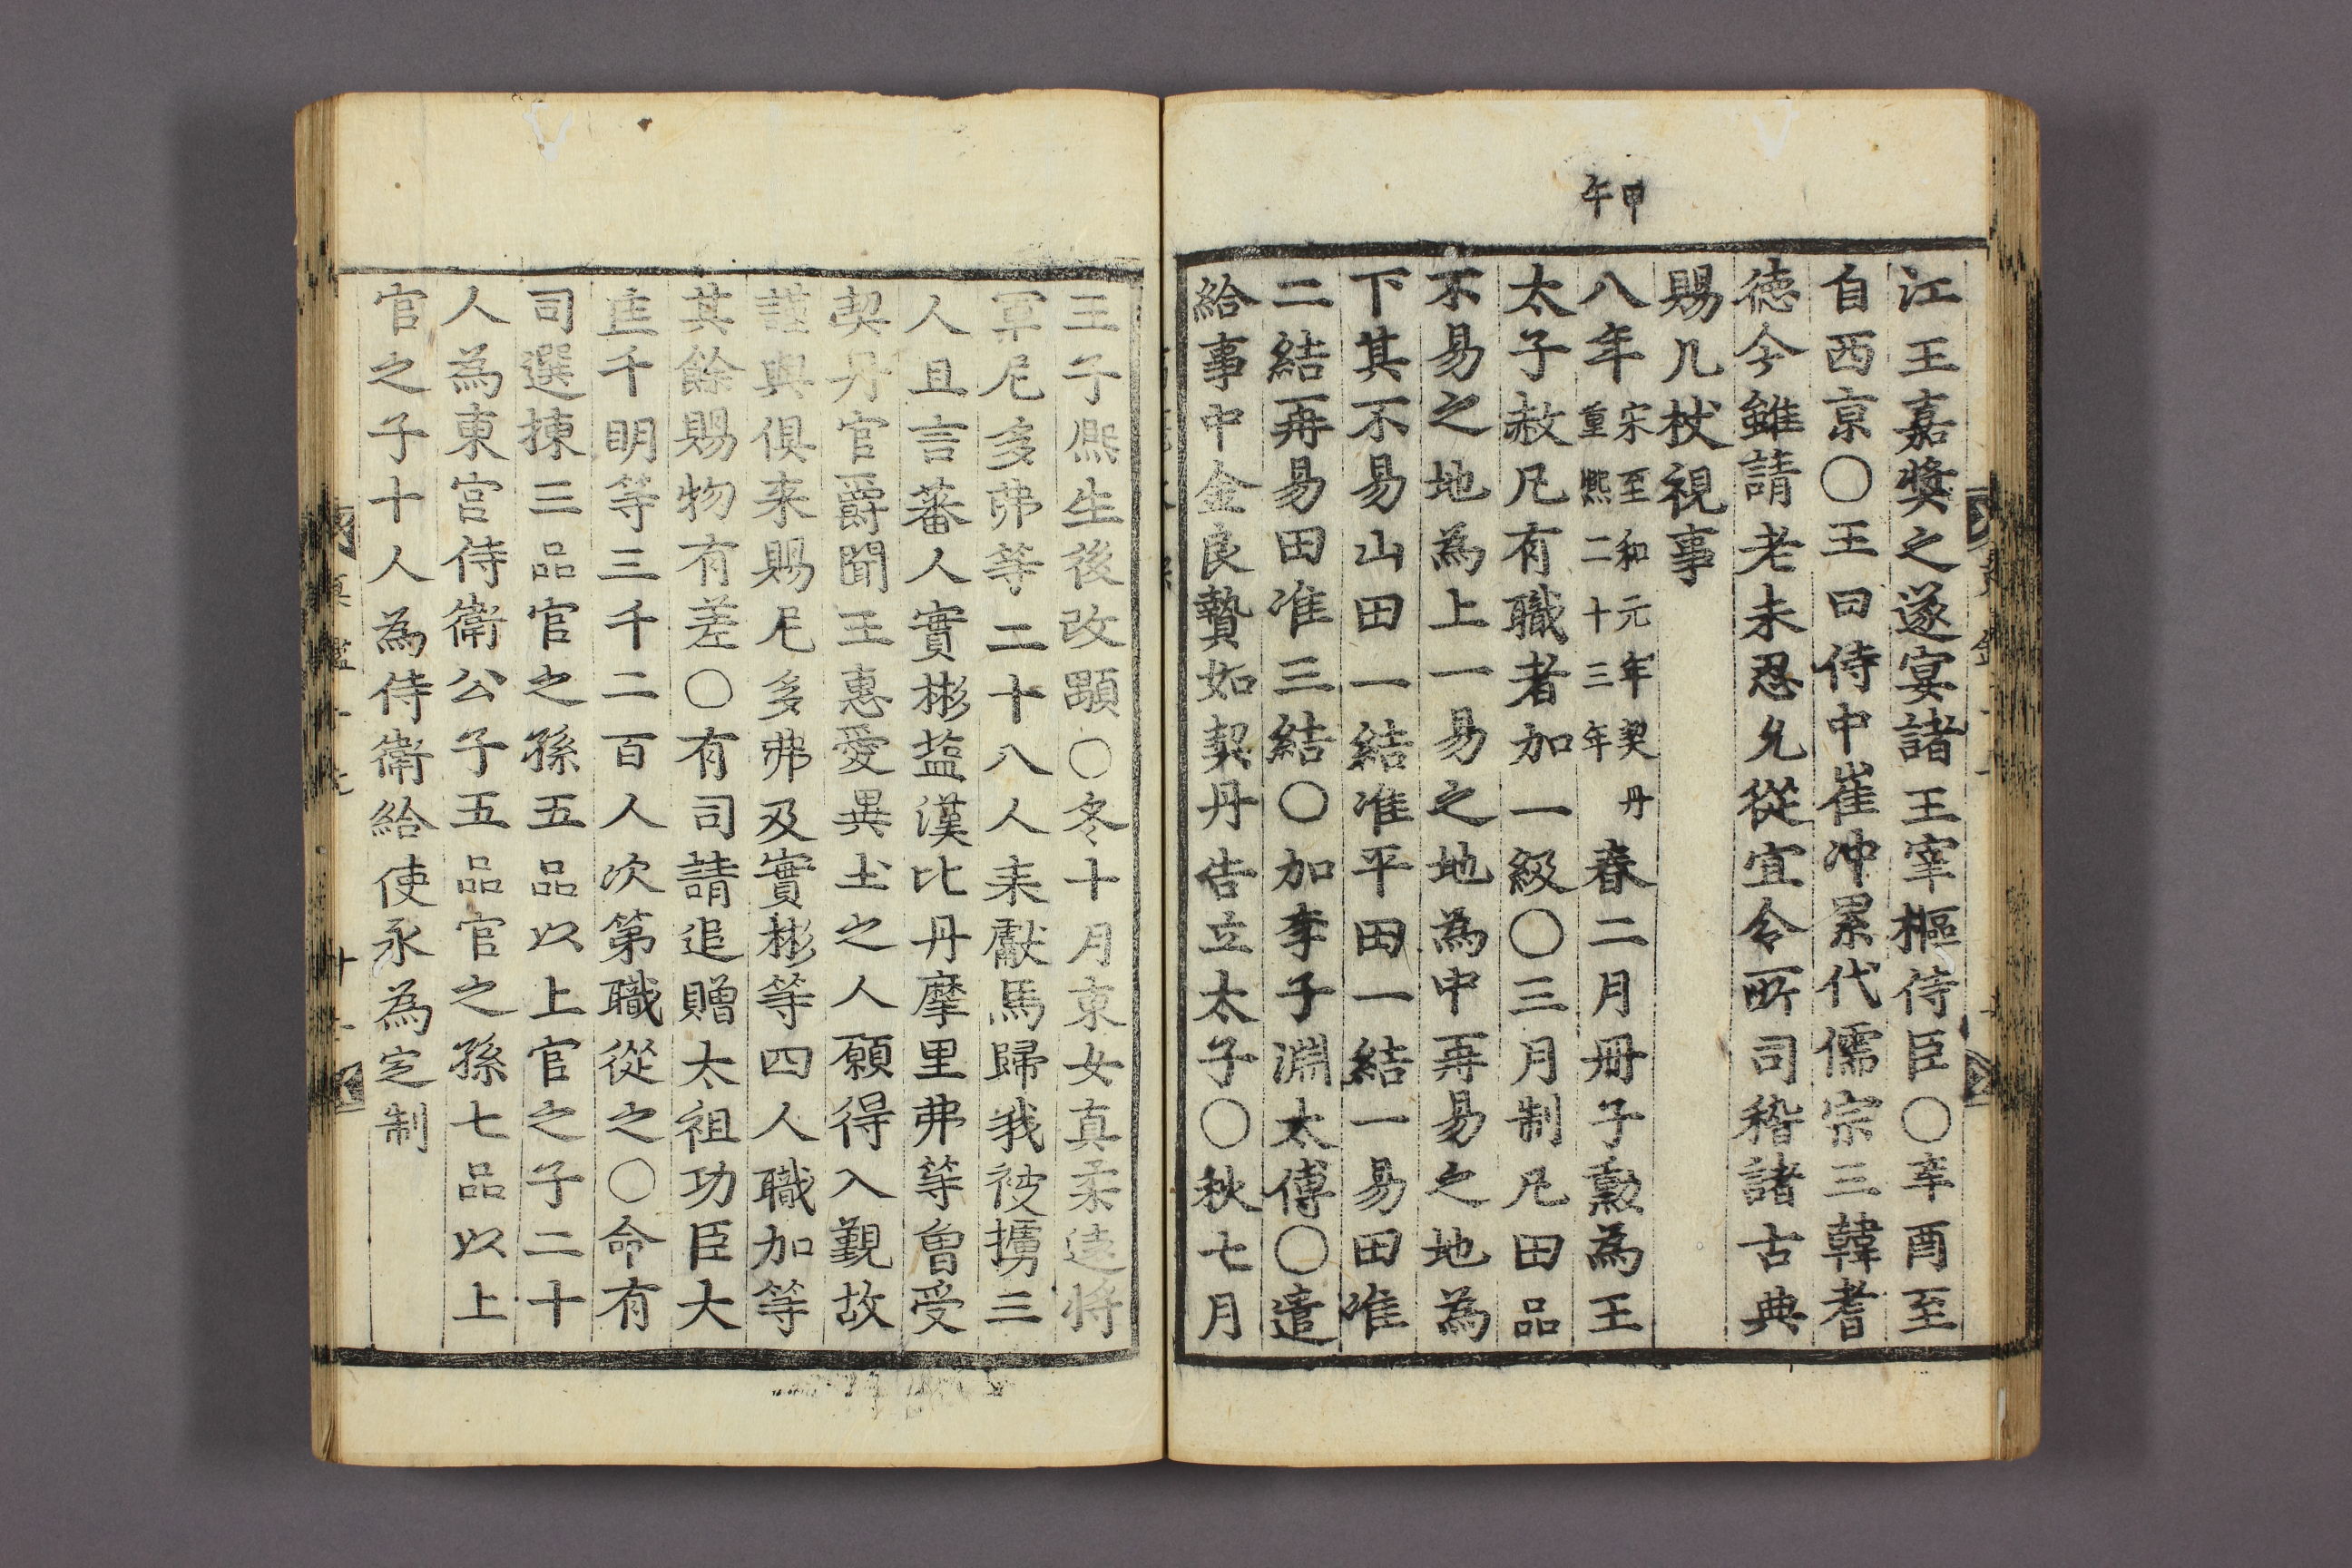 甲午
江王嘉奬之遂宴諸王宰樞侍臣〇辛酉至
自西京〇王曰侍中崔冲累代儒宗三韓耆
徳今雖請老未忍允從宜令所司稽諸古典
賜几杖視事
八年宋至和元年契丹重熙二十三年春二月册子勲為王
太子赦凡有職者加一級〇三月制凡田品
不易之地為上一易之地為中再易之地為
下其不易山田一結准平田一結一易田准
二結再易田准三結〇加李子淵太傅〇遣
給事中金良贄如契丹告立太子〇秋七月
王子熈生後改顒〇冬十月東女真柔遠將
軍尼多弗等二十八人来獻馬歸我被擄三
人且言蕃人實彬盐漢比丹摩里弗等曾受
契丹官爵聞王惠愛異土之人願得入觀故
謹與俱来賜尼多弗及實彬等四人職加等
其餘賜物有差〇有司請追贈太祖功臣大
匡千明等三千二百人次第職從之〇命有
司選揀三品官之孫五品以上官之子二十
人為東宫侍衛公子五品官之孫七品以上
官之子十人為侍衛給使永為定制